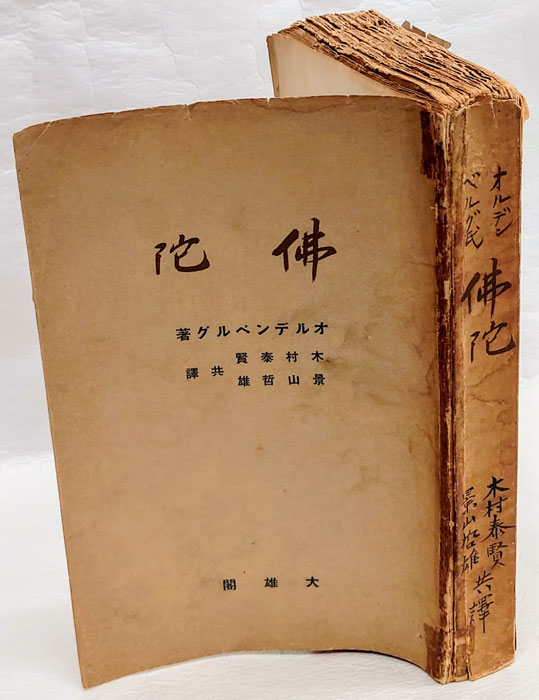 佛陀
オルデンベルグ著
木村泰賢
景山哲雄
共譯
大雄閣
オルデン
ベルグ氏
佛陀
木村泰賢
景山哲雄
共譯